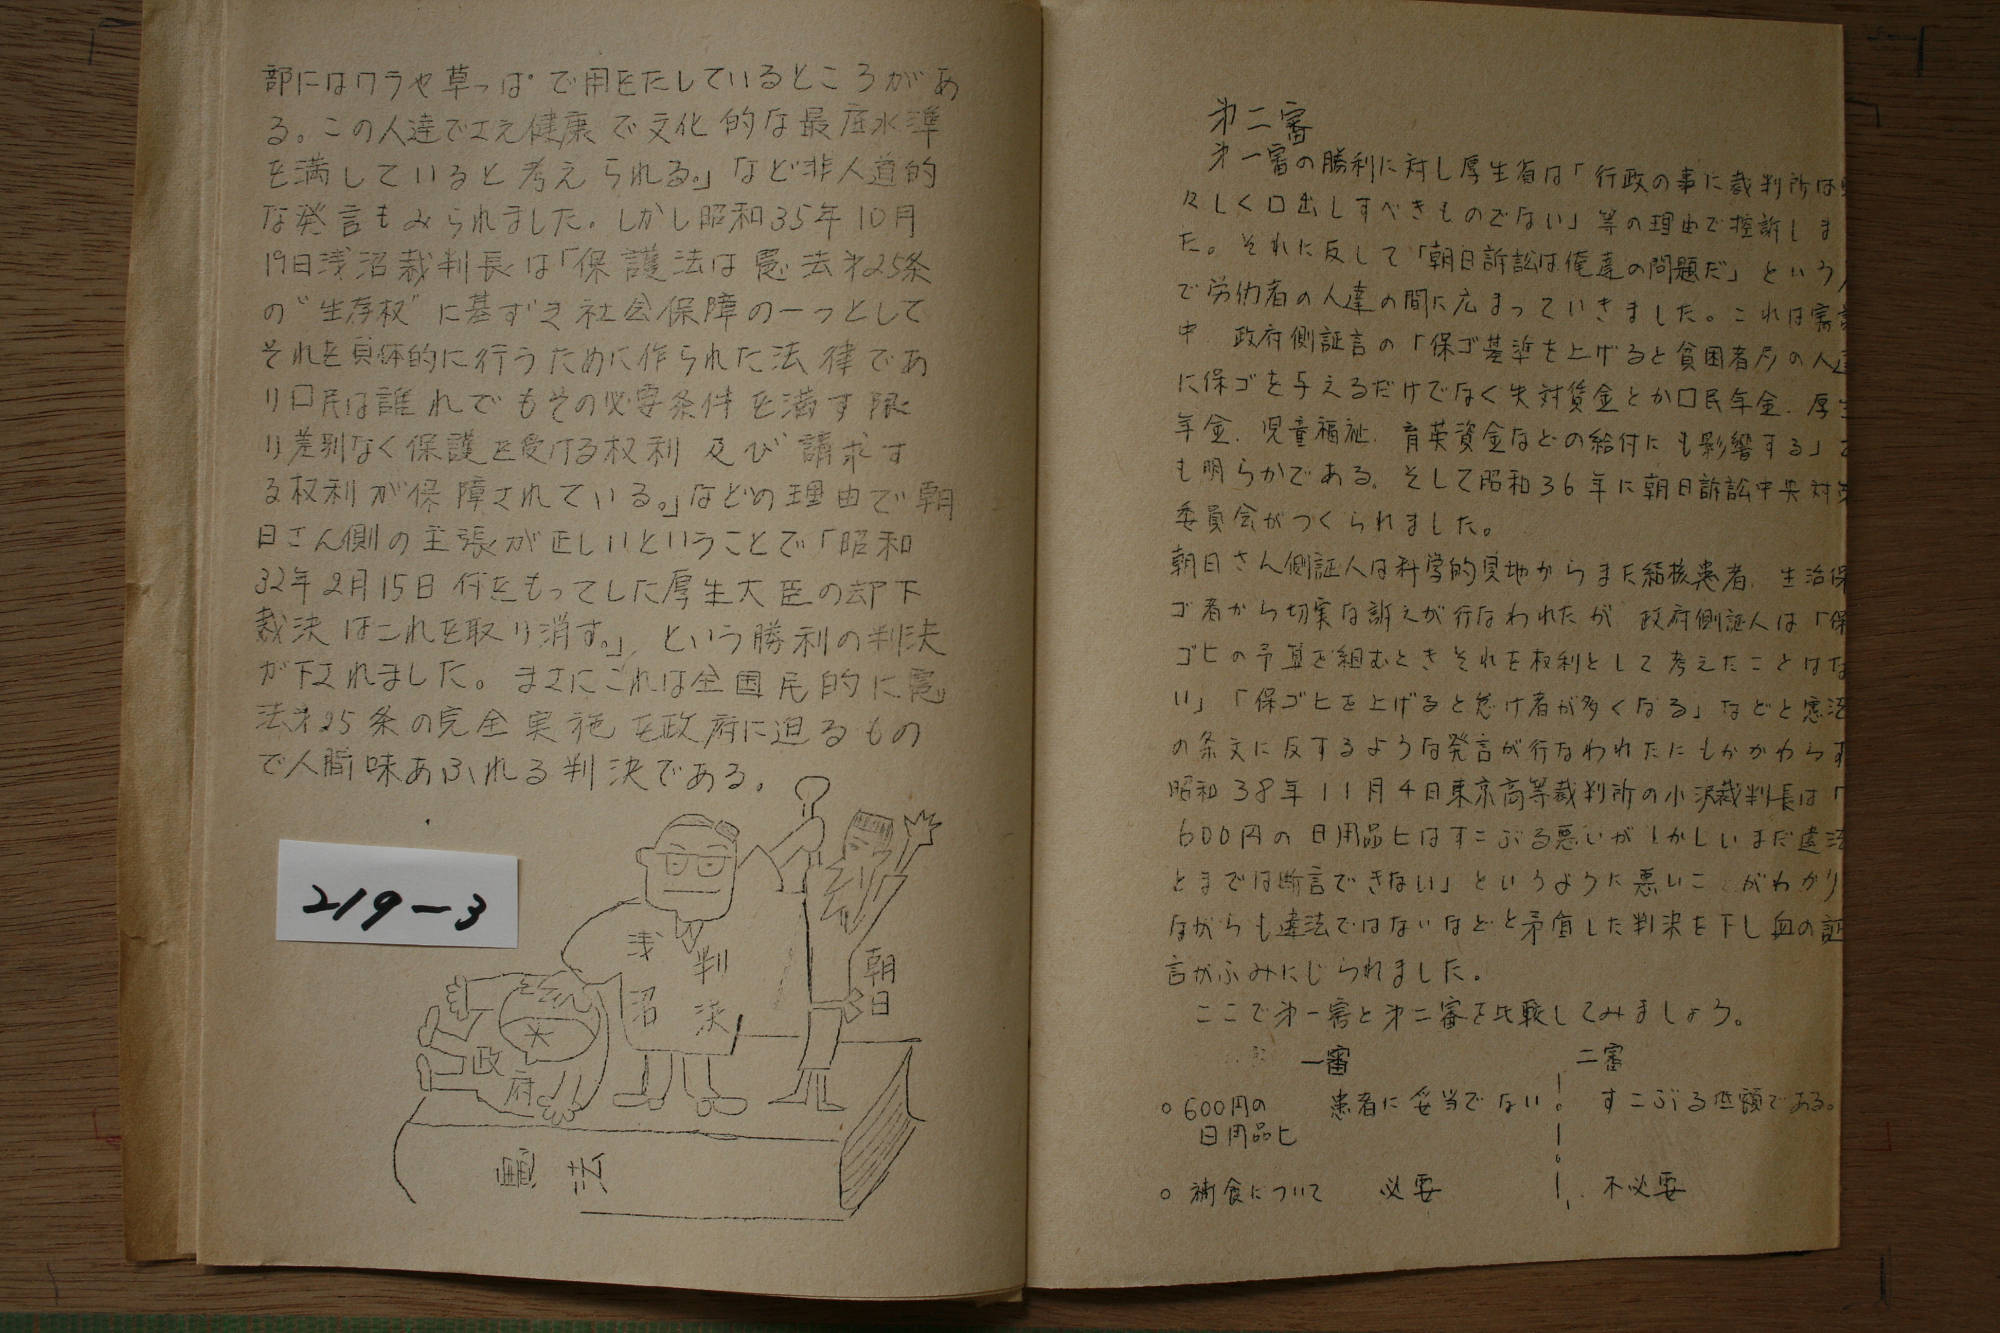 部にはワラや草っぱで用をたしているところがあ
る。この人達でさえ健康で文化的な最底水準
を満していると考えられる。」など非人道的
な発言もみられました。しかし昭和35年10月
19日浅沼裁判長は「保護法は憲法第25条
の"生存权"に基ずき社会保障の一つとして
それを具体的に行うために作られた法律であ
り口民は誰れでもその必要条件を満す限
り差別なく保護を受ける权利及び請求す
る权利が保障されている。」などの理由で朝
日さん側の主張が正しいということで「昭和
32年2月15日付をもってした厚生大臣の却下
裁決はこれを取り消す。」という勝利の判決
が下されました。まさにこれは全国民的に憲
法第25条の完全実施を政府に迫るもの
で人間味あふれる判決である。
219-3
浅沼
判決
朝日
政府
憲法
第二審
第一審の勝利に対し厚生省は「行政の事に裁判所は
々しく口出しすべきものでない」等の理由で控訴しま
た。それに反して「朝日訴訟は俺達の問題だ」という
で労仂者の人達の間に広まっていきました。これは審
中 政府側証言の「保ゴ基準を上げると貧困者层の人達
に保ゴを与えるだけでなく失対賃金とか口民年金、厚生
年金、児童福祉、育英資金などの給付にも影響する」で
も明らかである。そして昭和36年に朝日訴訟中央対策
委員会がつくられました。
朝日さん側証人は科学的見地からまた結核患者、生活保
ゴ者から切実な訴えが行なわれたが 政府側証人は「保
ゴヒの予算を組むときそれを权利として考えたことはな
い」「保ゴヒを上げると怠け者が多くなる」などと憲法
の条文に反するような発言が行なわれたにもかかわらず
昭和38年11月4日東京高等裁判所の小沢裁判長は「
600円の日用品ヒはすこぶる悪いがしかしいまだ違法
とまでは断言できない」というように悪いこ がわかり
ながらも違法ではないなどと矛盾した判決を下し血の証
言がふみにじられました。
ここで第一審と第二審を比較してみましょう。
一審 二審
○ 600円の日用品ヒ 患者に妥当でない すこぶる低額である。
○ 補食について 必要 不必要